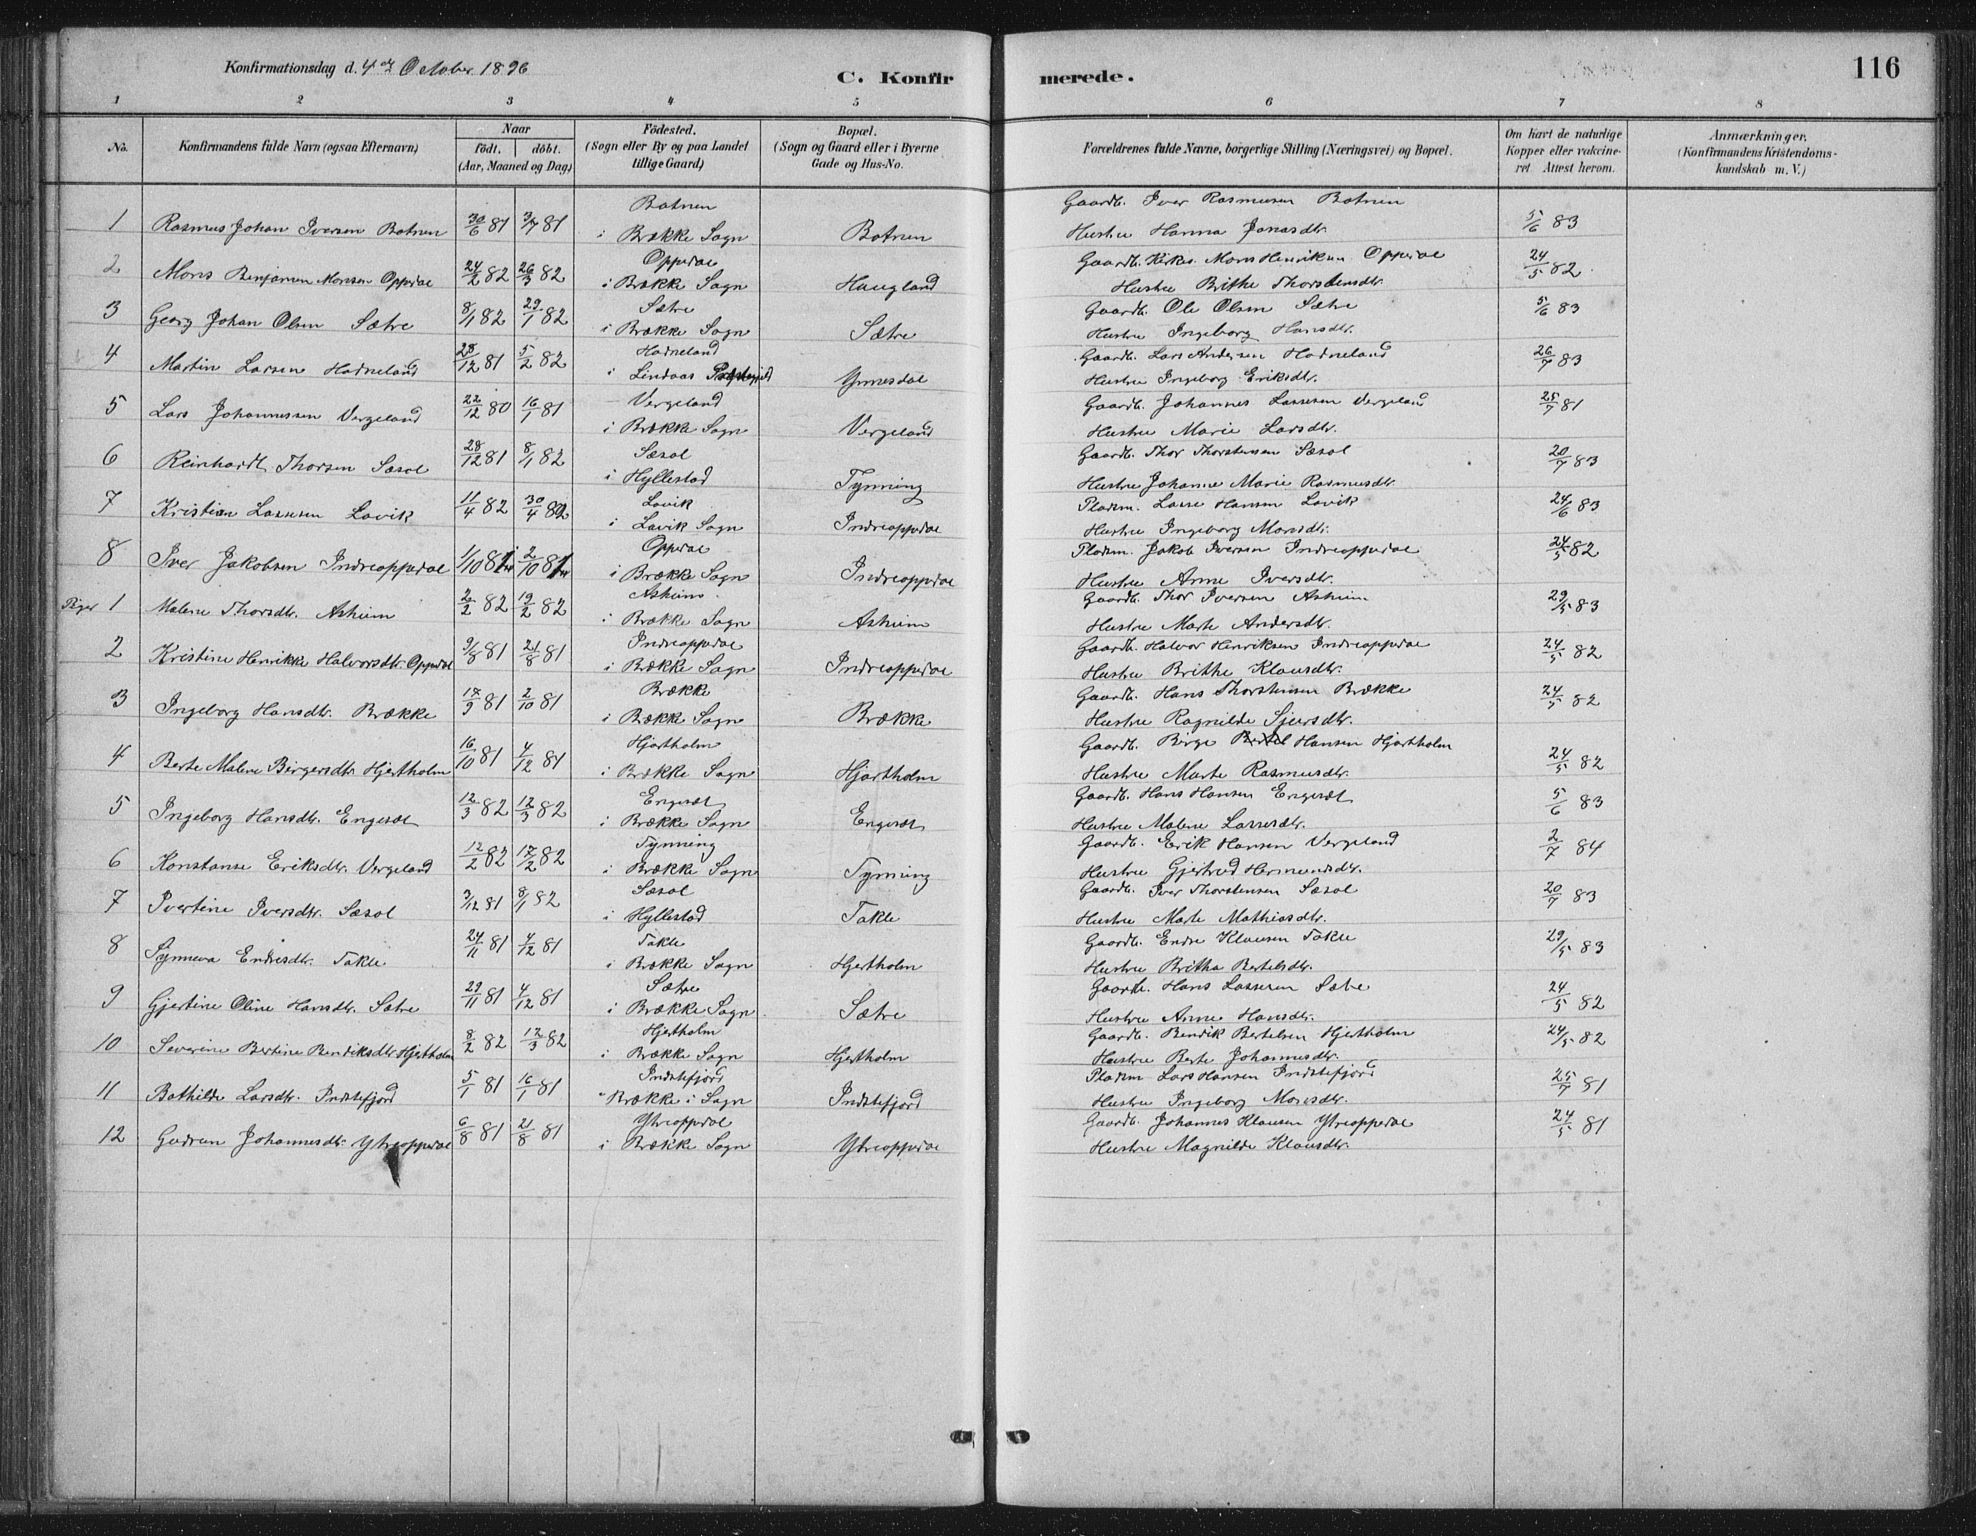 Konfirmationsdag d. 4de October 1896
C. Konfirmerede.
116
1 2 3 4 5 6 7 8
No. Konfirmandens fulde Navn (ogsaa Efternavn) Naar födt. döbt. (Aar, Maaned og Dag) Födested. (Sogn eller By og paa Landet tillige Gaard) Bopæl. (Sogn og Gaard eller i Byerne Gade og Hus-No. Forældrenes fulde Navne, borgerlige Stilling (Næringsvei) og Bopæl. Om havt de naturlige Kopper eller vakcineret Attest herom. Anmærkninger. (Konfirmandens Kristendomskundskab m.V.)
1 Rasmus Johan Iversen Botnen 30/6 81 3/7 81 Botnen i Brække Sogn Botnen Gaardb. Iver Rasmusen Botnen Hustru Hanna Jonasdtr. 5/6 83
2 Mons Benjamin Monsen Oppdal 24/2 82 26/3 82 Oppdal i Brække Sogn Haugland Gaardb. Mons Henriksen Oppdal Hustru Brithe Thorstensdtr. 24/5 82.
3 Georg Johan Olsen Sætre 8/1 82 29/1 82 Sætre i Brække Sogn Sætre Gaardb. Ole Olsen Sætre Hustru Ingeborg Hansdtr. 5/6 83
4 Martin Larsen Hodneland 28/12 81 5/2 82 Hodneland i Lindaas Ynnesdal Gaardb. Lars Andersen Hodneland Hustru Ingeborg Eriksdtr. 26/7 83
5 Lars Johannessen Vergeland 22/12 80 16/1 81 Vergeland i Brække Sogn Vergeland Gaardb. Johannes Lassesen Vergeland Hustru Marie Larsdtr. 25/7 81
6 Reinhardt Thorsen Sæsol 28/12 81 8/1 82 Sæsol i Hyllestad Tynning Gaardb. Thor Thorstensen Sæsol Hustru Johanne Marie Rasmusdtr 20/7 83
7 Kristian Lassesen Lavik 11/4 82 30/4 82 Lavik i Lavik Sogn Indreoppdal Pladsm. Lasse Hansen Lavik Hustru Ingeborg Monsdtr. 24/6 83
8 Iver Jakobsen Indreoppdal 1/10 81 2/10 81 Oppdal i Brække Sogn Indreoppdal Pladsm. Jakob Iversen Indreoppdal Hustru Anne Iversdtr. 24/5 82
Piger 1 Malene Thorsdtr. Asheim 2/2 82 19/2 82 Asheim. i Brække Sogn Asheim Gaardb. Thor Iversen Asheim Hustru Marte Andersdtr. 29/5 83
2 Kristine Henrikke Halvorsdtr. Oppdal 9/8 81 21/8 81 Indreoppdal i Brække Sogn Indreoppdal Gaardb. Halvor Henriksen Indreoppdal Hustru Brithe Klausdtr. 24/5 82
3 Ingeborg Hansdtr. Brække 17/9 81 2/10 81 Brække i Brække Sogn Brække Gaardb. Hans Thorstensen Brække Hustru Ragnilde Sjursdtr. 24/5 82
4 Berte Malene Birgersdtr Hjertholm 16/10 81 4/12 81 Hjortholm i Brække Sogn Hjortholm Gaardb. Birge Hansen Hjortholm Hustru Marte Rasmusdtr. 24/5 82
5 Ingeborg Hansdtr. Engesæt 12/3 82 12/3 82 Engesæt i Brække Sogn Engesæt Gaardb. Hans Hansen Engesæt Hustru Malene Lassesdtr. 5/6 83
6 Konstanse Eriksdtr. Vergeland 12/2 82 17/2 82 Tynning i Brække Sogn Tynning Gaardb. Erik Hansen Vergeland Hustru Gjertrud Hermundsdtr. 2/7 84
7 Ivertine Iversdtr. Sæsol 3/12 81 8/1 82 Sæsol i Hyllestad Takle Gaardb. Iver Thorstensen Sæsol Hustru Marte Mathiasdtr. 20/7 83
8 Synneva Endresdtr. Takle 24/11 81 4/12 81 Takle i Brække Sogn Hjertholm Gaardb. Endre Klausen Takle Hustru Britha Bertelsdtr. 29/5 83
9 Gjertine Oline Hansdtr. Sætre 29/11 81 4/12 81 Sætre i Brække Sogn Sætre Gaardb. Hans Lassesen Sætre Hustru Anne Hansdtr. 24/5 82
10 Severine Bertine Bendiksdtr Hjertholm 8/2 82 12/3 82 Hjertholm i Brække Sogn Hjertholm Gaardb. Bendik Bertelsen Hjertholm Hustru Berte Johannesdtr. 24/5 82
11 Bothilde Larsdtr. Indstefjord 5/1 81 16/1 81 Indstefjord Brække i Sogn Indstefjord Pladsm Lars Hansen Indstefjord Hustru Ingeborg Monsdtr. 25/7 81
12 Gudrun Johannesdtr Ytreoppdal 6/8 81 21/8 81 Ytreoppdal i Brække Sogn Ytreoppdal Gaardb. Johannes Klausen Ytreoppdal Hustru Magnilde Klausdtr. 24/5 81